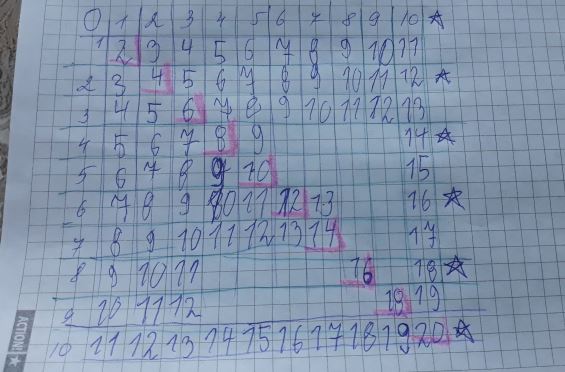 0 1 2 3 4 5 6 7 8 9 10 ☆
1 2 3 4 5 6 7 8 9 10 11
2 3 4 5 6 7 8 9 10 11 12 ☆
3 4 5 6 7 8 9 10 11 12 13
4 5 6 7 8 9 14 ☆
5 6 7 8 9 10 15
6 7 8 9 10 11 12 13 16 ☆
7 8 9 10 11 12 13 14 17
8 9 10 11 16 18 ☆
9 10 11 12 18 19
10 11 12 13 14 15 16 17 18 19 20 ☆
ACTION!